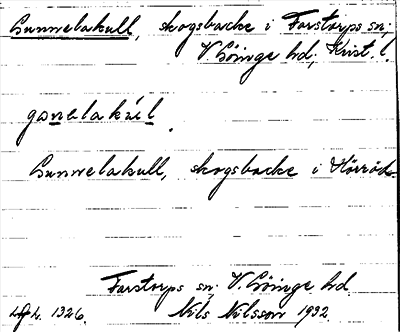 Gunnelakull, skogsbacke i Farstorps sn,
V. Göinge hd, Krist. l.
gɑnelakúl.
Gunnelakull, skogsbacke i Hörröd
Farstorps sn, V. Göinge hd.
1326. Nils Nilsson 1932.